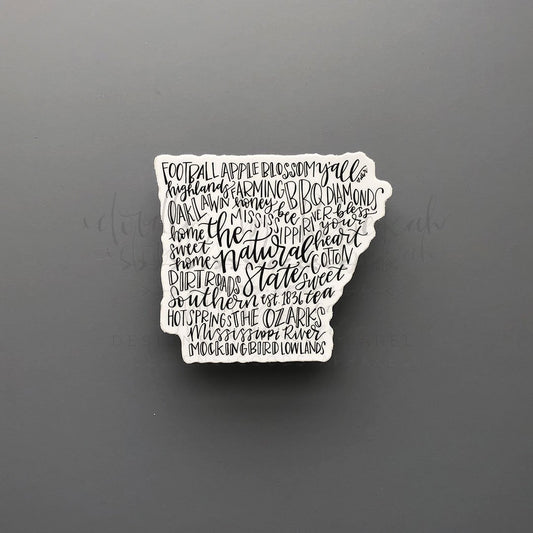 FOOTBALL APPLE BLOSSOM y'all
highlands FARMING BBQ DIAMONDS
OAKLAWN honey bee RIVER bless your heart
MISSISSIPPI
home sweet home the Natural State COTTON
DIRT ROADS sweet tea
Southern est. 1836
HOT SPRINGS THE OZARKS
Mississippi River
MOCKINGBIRD LOWLANDS